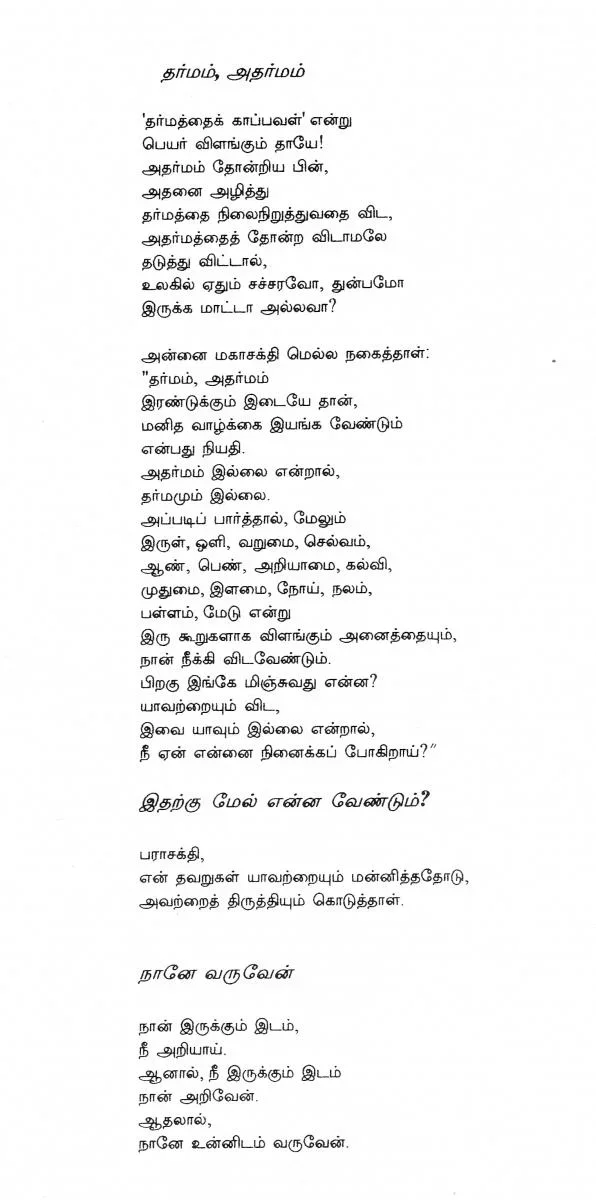 தர்மம், அதர்மம்
'தர்மத்தைக் காப்பவள்' என்று
பெயர் விளங்கும் தாயே!
அதர்மம் தோன்றிய பின்,
அதனை அழித்து
தர்மத்தை நிலைநிறுத்துவதை விட,
அதர்மத்தைத் தோன்ற விடாமலே
தடுத்து விட்டால்,
உலகில் ஏதும் சச்சரவோ, துன்பமோ
இருக்க மாட்டா அல்லவா?
அன்னை மகாசக்தி மெல்ல நகைத்தாள்:
"தர்மம், அதர்மம்
இரண்டுக்கும் இடையே தான்,
மனித வாழ்க்கை இயங்க வேண்டும்
என்பது நியதி.
அதர்மம் இல்லை என்றால்,
தர்மமும் இல்லை.
அப்படிப் பார்த்தால், மேலும்
இருள், ஒளி, வறுமை, செல்வம்,
ஆண், பெண், அறியாமை, கல்வி,
முதுமை, இளமை, நோய், நலம்,
பள்ளம், மேடு என்று
இரு கூறுகளாக விளங்கும் அனைத்தையும்,
நான் நீக்கி விடவேண்டும்.
பிறகு இங்கே மிஞ்சுவது என்ன?
யாவற்றையும் விட,
இவை யாவும் இல்லை என்றால்,
நீ ஏன் என்னை நினைக்கப் போகிறாய்?"
இதற்கு மேல் என்ன வேண்டும்?
பராசக்தி,
என் தவறுகள் யாவற்றையும் மன்னித்ததோடு,
அவற்றைத் திருத்தியும் கொடுத்தாள்.
நானே வருவேன்
நான் இருக்கும் இடம்,
நீ அறியாய்.
ஆனால், நீ இருக்கும் இடம்
நான் அறிவேன்.
ஆதலால்,
நானே உன்னிடம் வருவேன்.